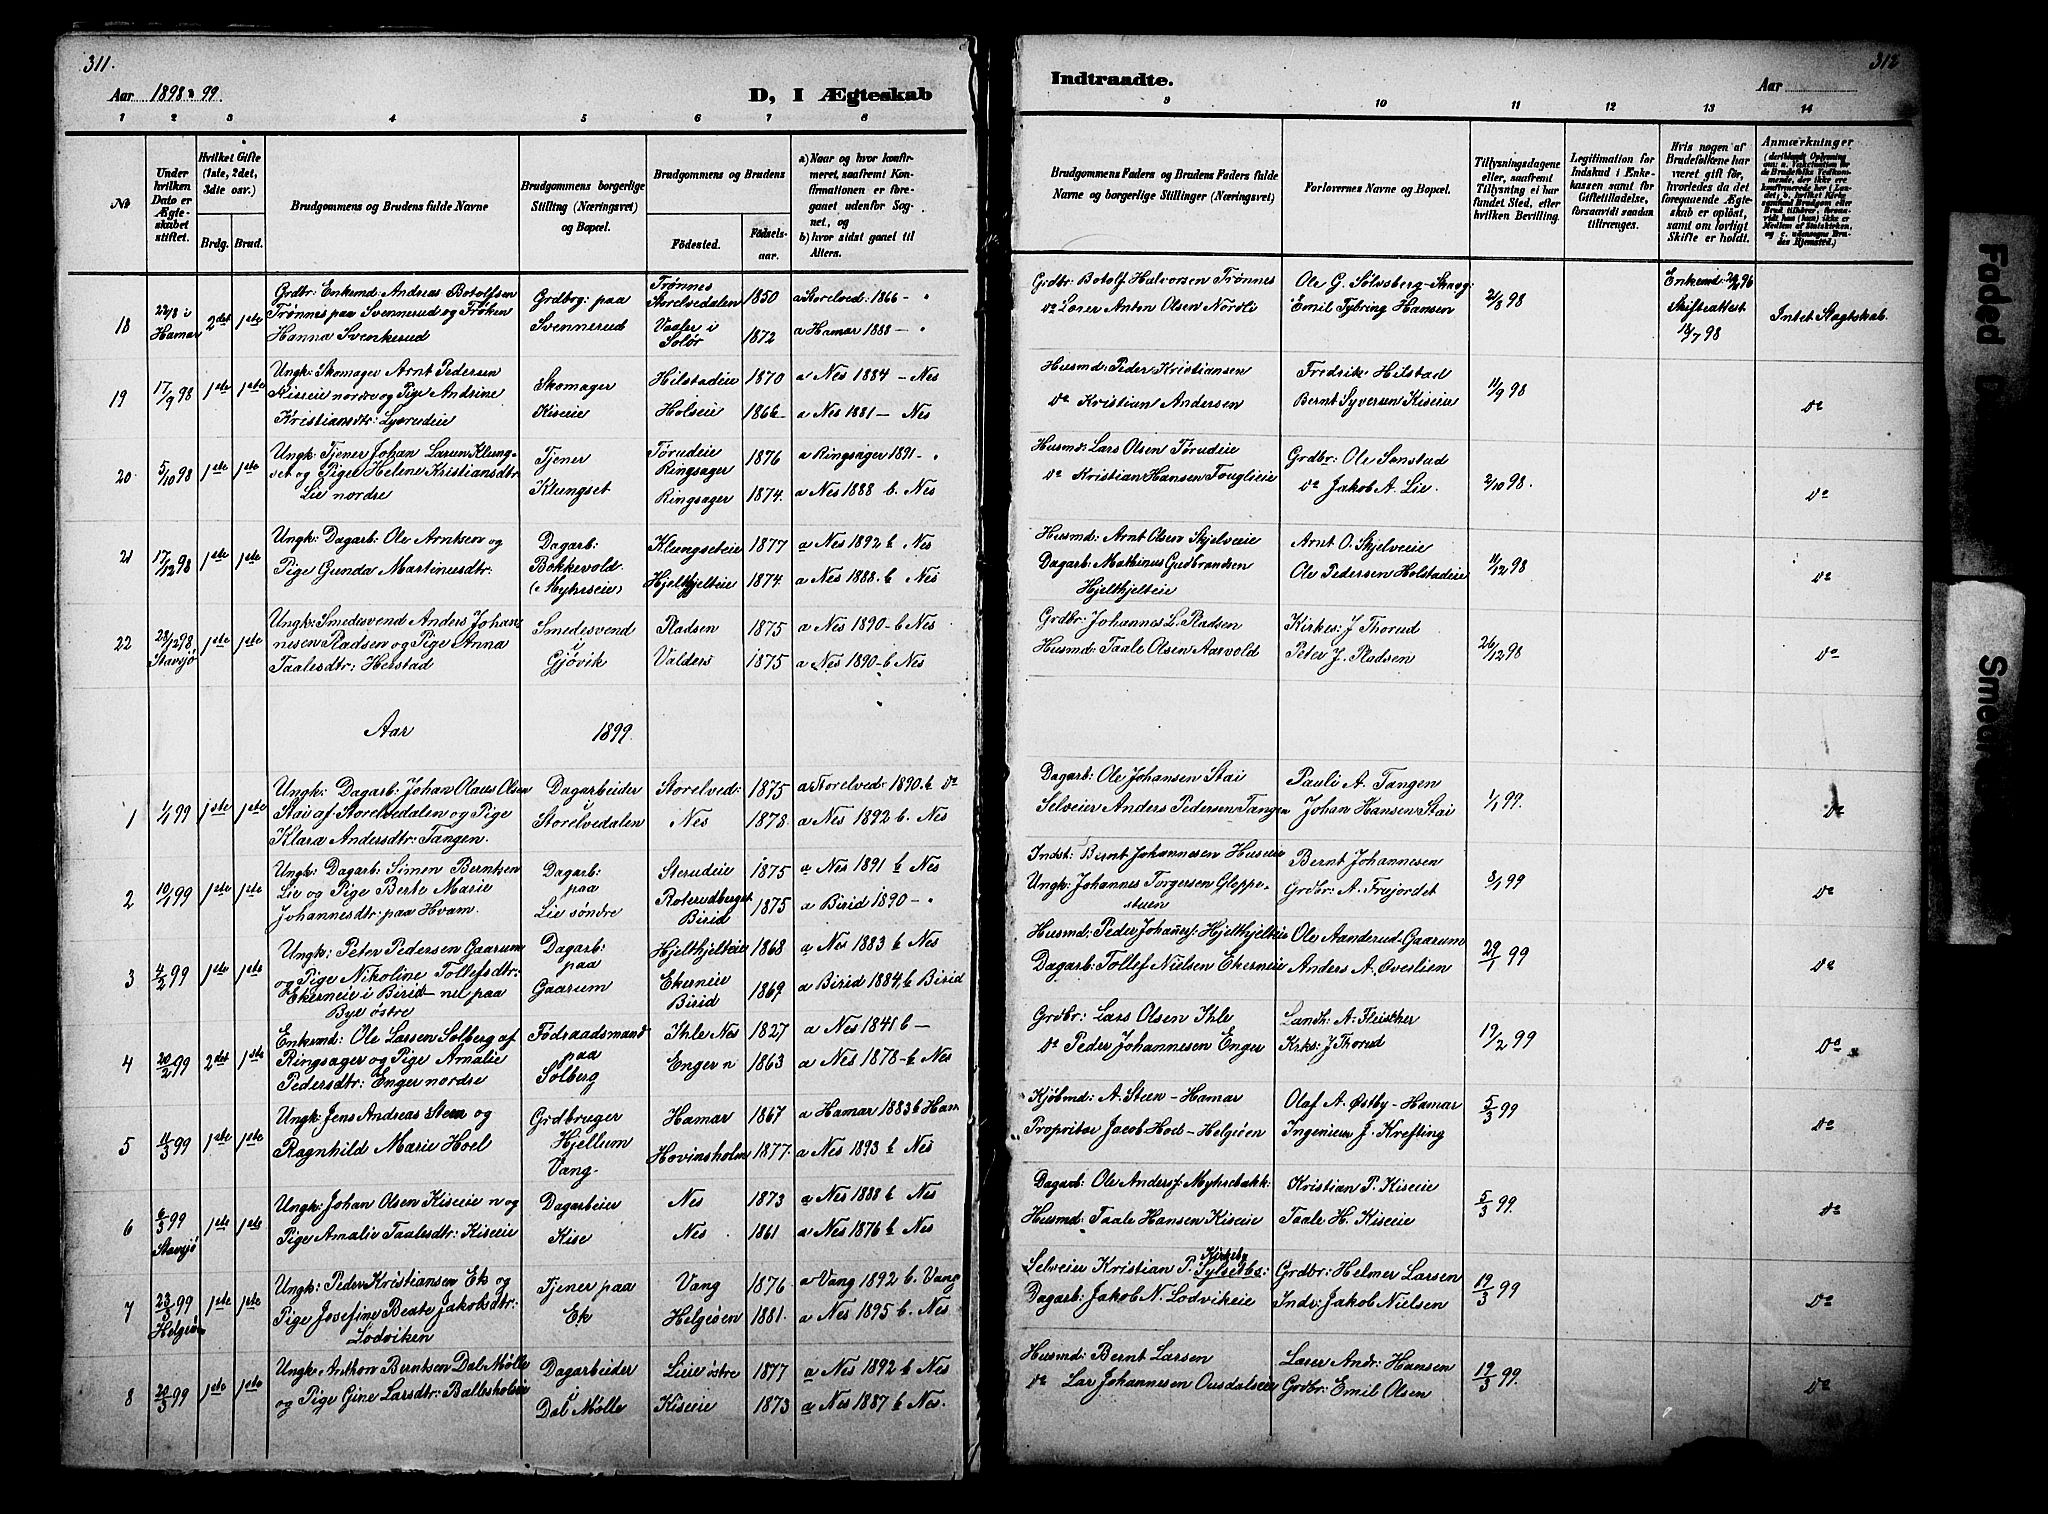 311.
Aar 1898 & 99.
D, I Ægteskab
1 2 3 4 5 6 7 8
No
Under hvilken Dato er Ægteskabet stiftet.
Hvilket Gifte (1ste, 2det, 3die osv.)
Brdg. Brud.
Brudgommens og Brudens fulde Navne
Brudgommens borgerlige Stilling (Næringsvei) og Bopæl.
Brudgommens og Brudens
Fødested. Fødselsaar.
a) Naar og hvor konfirmeret, saafremt Konfirmationen er foregaaet udenfor Sognet, og
b) hvor sidst gaaet til Alters.
18 22/8 i Hamar 2det 1ste
Grdbr: Enkemd: Andreas Botolfsen
Trønnes paa Svennerud og Frøken
Hanna Svenkerud
Grdbrg: paa
Svennerud
Trønnes
Storelvedalen 1850 a Storelved: 1866 - "
Vaaler i
Solør 1872 a Hamar 1888 - "
19 17/9 98 1ste 1ste
Ungk: Skomager Arnt Pedersen
Kiseie nordre og Pige Andrine
Kristiansdtr:
Skomager
Kiseie
Hilstadeie 1870 a Nes 1884 - Nes
Holseie 1866 a Nes 1881 - Nes
20 5/10 98 1ste 1ste
Ungk: Tjener Johan Larsen Klung-
set og Pige Helene Kristiansdtr
Lie nordre
Tjener
Klungset
Tørudeie
Ringsager 1876 a Ringsager 1891 - "
Ringsager 1874. a Nes 1888 b. Nes
21 17/12 98 1ste 1ste
Ungk: Dagarb: Ole Arntsen og
Pige Gunda Martinusdtr:
Dagarb:
Bokkevold
(Myhrseie)
Klungseteie 1877 a Nes 1892 b Nes
Hjelthjelteie 1874. a Nes 1888. b Nes
22 28/12 98 Stavsjø 1ste 1ste
Ungk: Smedesvend Anders Johan-
nesen Pladsen og Pige Anna
Taalesdtr: Helstad
Smedesvend
i
Gjøvik
Pladsen 1875 a Nes 1890 - b Nes
Valders 1875 a Nes 1890 - b Nes
Aar 1899.
1 1/1 99 1ste 1ste
Ungk: Dagarb: Johan Olaus Olsen
Stai af Storelvedalen og Pige
Klara Andersdtr: Tangen.
Dagarbeider
i
Storelvedalen
Storelved: 1875 a Storelved: 1890. b do
Nes 1878. a Nes 1892 b. Nes
2 10/1 99 1ste 1ste
Ungk: Dagarb: Simen Berntsen
Lie og Pige Berte Marie
Johannesdtr: paa Hvam.
Dagarb:
paa
Lie søndre
Sterudeie 1875 a Nes 1891 b Nes
Roterudberget
Birid 1875 a Birid 1890 - "
3 4/2 99 1ste 1ste
Ungk: Peter Pedersen Gaarum
og Pige Nikoline Tollefsdtr:
Ekerneie i Birid - nu paa
Bye østre
Dagarb:
paa
Gaarum
Hjelthjelteie 1868 a Nes 1883 b Nes
Ekerneie
Birid 1869 a Birid 1884, b Birid
4 20/2 99 2det 1ste
Enkemd: Ole Larsen Solberg af
Ringsager og Pige Amalie
Pedersdtr: Enger nordre
Fødraadsmand
paa
Solberg
Ihle Nes 1827 a Nes 1841 b -
Enger n 1863 a Nes 1878 - b Nes
5 4/3 99 1ste 1ste
Ungk: Jens Andreas Steen og
Ragnhild Marie Hoel
Grdbruger
Hjellum
Vang.
Hamar 1867 a Hamar 1883 b Ham
Hovinsholm 1877. a Nes 1893 b Nes
6 6/3 99 Stavsjø 1ste 1ste
Ungk: Johan Olsen Kiseie n og
Pige Amalie Taalesdtr: Kiseie
Dagarbeide
Kise
Nes 1873 a Nes 1888 b Nes
Nes 1861 a Nes 1876 b Nes
7 23/3 99 Helgeøen 1ste 1ste
Ungk: Peder Kristiansen Ek og
Pige Josefine Beate Jakobsdtr:
Lodviken
Tjener paa
Ek
Vang 1876 a Vang 1892 b. Vang
Helgeøen 1881. a Nes 1895 b. Nes
8 20/3 99 1ste 1ste
Ungk: Anthon Berntsen Dal Mølle
og Pige Gine Larsdtr: Ballesholeie
Dagarbeider
i
Dal Mølle
Lieie østre 1877 a Nes 1892 b Nes
Kiseie 1873 a Nes 1887 b Nes.
312
Indtraadte.
Aar
9 10 11 12 13 14
Brudgommens Faders og Brudens Faders fulde Navne og borgerlige Stillinger (Næringsvei)
Forlovernes Navne og Bopæl.
Tillysningsdagene eller, saafremt Tillysning ei har fundet Sted, efter hvilken Bevilling.
Legitimation for Indskud i Enkekassen samt for Giftetilladelse, forsaavidt saadan tiltrænges.
Hvis nogen af Brudefolkene har været gift før, hvorledes da det foregaaende Ægteskab er opløst, samt om lovligt Skifte er holdt.
Anmærkninger
Grdbr: Botolf Halvorsen Trønnes
do Loner Anton Olsen Nordli
Ole G. Solvsberg - Skaug
Emil Tybring Hansen
21/8 98
Enkemd 96
Skifteattest
18/7 98
Intet Slagtskab.
Husmd: Peder Kristiansen
do Kristian Andersen
Fredrik Hilstad
Bernt Syversen Kiseie
11/9 98
do
Husmd: Lars Olsen Tørudeie
do Kristian Hansen Fouglieie
Grdbr: Ole Sonstad
do Jakob A. Lie.
2/10 98.
do
Husmd: Arnt Olsen Skjelveie
Dagarb: Mathinus Gudbrandsen
Hjelthjelteie
Arnt O. Skjelveie
Ole Pedersen Holstadeie
11/12 98
do
Grdbr: Johannes L. Pladsen
Husmd: Taale Olsen Aarvold
Kirkes: J Thorud
Peter J. Pladsen
26/12 98
do
Dagarb: Ole Johansen Stai
Selveier Anders Pedersen Tangen
Pauli A. Tangen
Johan Hansen Stai
1/1 99.
do
Indst: Bernt Johannesen Huseie
Ungk: Johannes Torgersen Gloppe-
stuen
Bernt Johannesen
Grdbr: A. Frøjordet
8/1 99
do
Husmd: Peder Johannes: Hjelthjelteie
Dagarb: Tollef Nielsen Ekerneie
Ole Aanderud Gaarum
Anders A. Øveslien
29/1 99
do
Grdbr: Lars Olsen Ihle
do Peder Johannesen Enger
Landh: A. Fleischer
Kirks: J Thorud
19/2 99
do
Kjøbmd: A. Steen - Hamar
Propritær Jacob Hoel - Helgøen
Olaf A. Østby - Hamar
Ingeniør J. Krefting
5/3 99
do
Dagarb: Ole Anders: Myhrebakk:
Husmd: Taale Hansen Kiseie
Kristian P. Kiseie
Taale H. Kiseie
5/3 99.
do
Kirkeby
Selveier Kristian P. Sylsetbs:
Dagarb: Jakob N. Lodvikeie
Grdbr: Helmer Larsen
Indr: Jakob Nielsen
19/3 99
do
Husmd: Bernt Larsen
do Lar Johannesen Ousdalseie
Lærer Andr: Hansen
Grdbr: Emil Olsen
19/3 99.
do
Faded
Smea